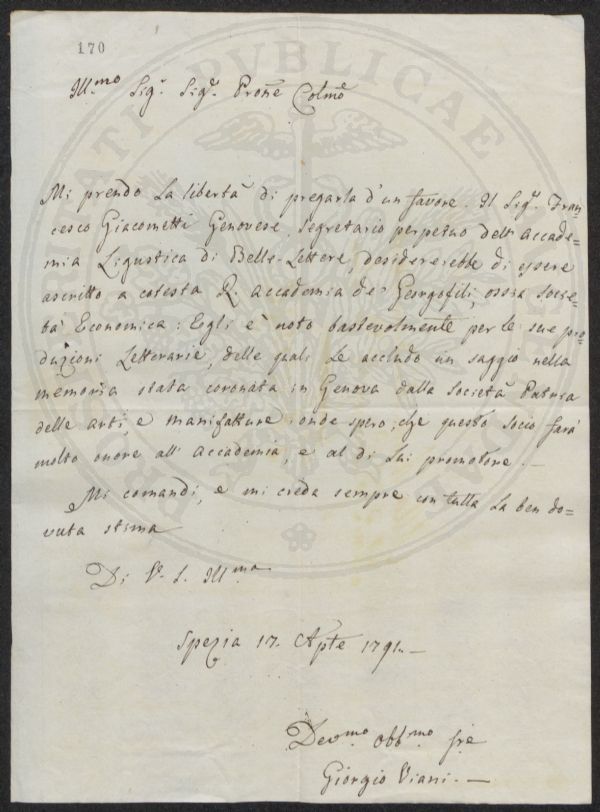 170
Ill.mo Sig.r Sig.r Prone Colmo
Mi prendo la libertà di pregarla d'un favore. Il Sig.r Fran=
cesco Giacometti Genovese, Segretario perpetuo dell'Accade=
mia Ligustica di Belle-Lettere, desidererebbe di essere
ascritto a cotesta R. Accademia de' Georgofili, ossia Socie=
tà Economica: Egli è noto bastevolmente per le sue pro=
duzioni Letterarie, delle quali Le accludo un saggio nella
memoria stata coronata in Genova dalla Società Patria
delle arti, e manifatture: onde spero, che questo socio farà
molto onore all'Accademia, e al di Lui promotore. —
Mi comandi, e mi creda sempre con tutta la ben do=
vuta stima
Di V. S. Ill.ma
Spezia 17. Aple 1791. —
Dev.mo Obb.mo Sre
Giorgio Viani. —